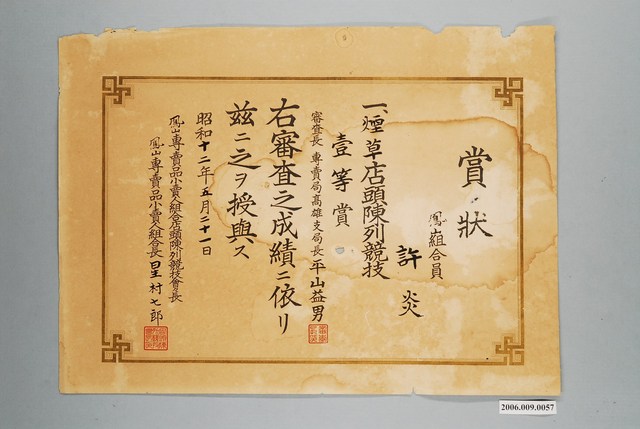 賞状
鳳山組合員
許炎
一、煙草店頭陳列競技
壹等賞
審査長 專賣局高雄支局長 平山益男
右審査之成績ニ依リ
茲ニ之ヲ授與ス
昭和十二年五月二十一日
鳳山專賣品小賣人組合店頭陳列競技會長
鳳山專賣品小賣人組合長 里村七郎
2006.009.0057